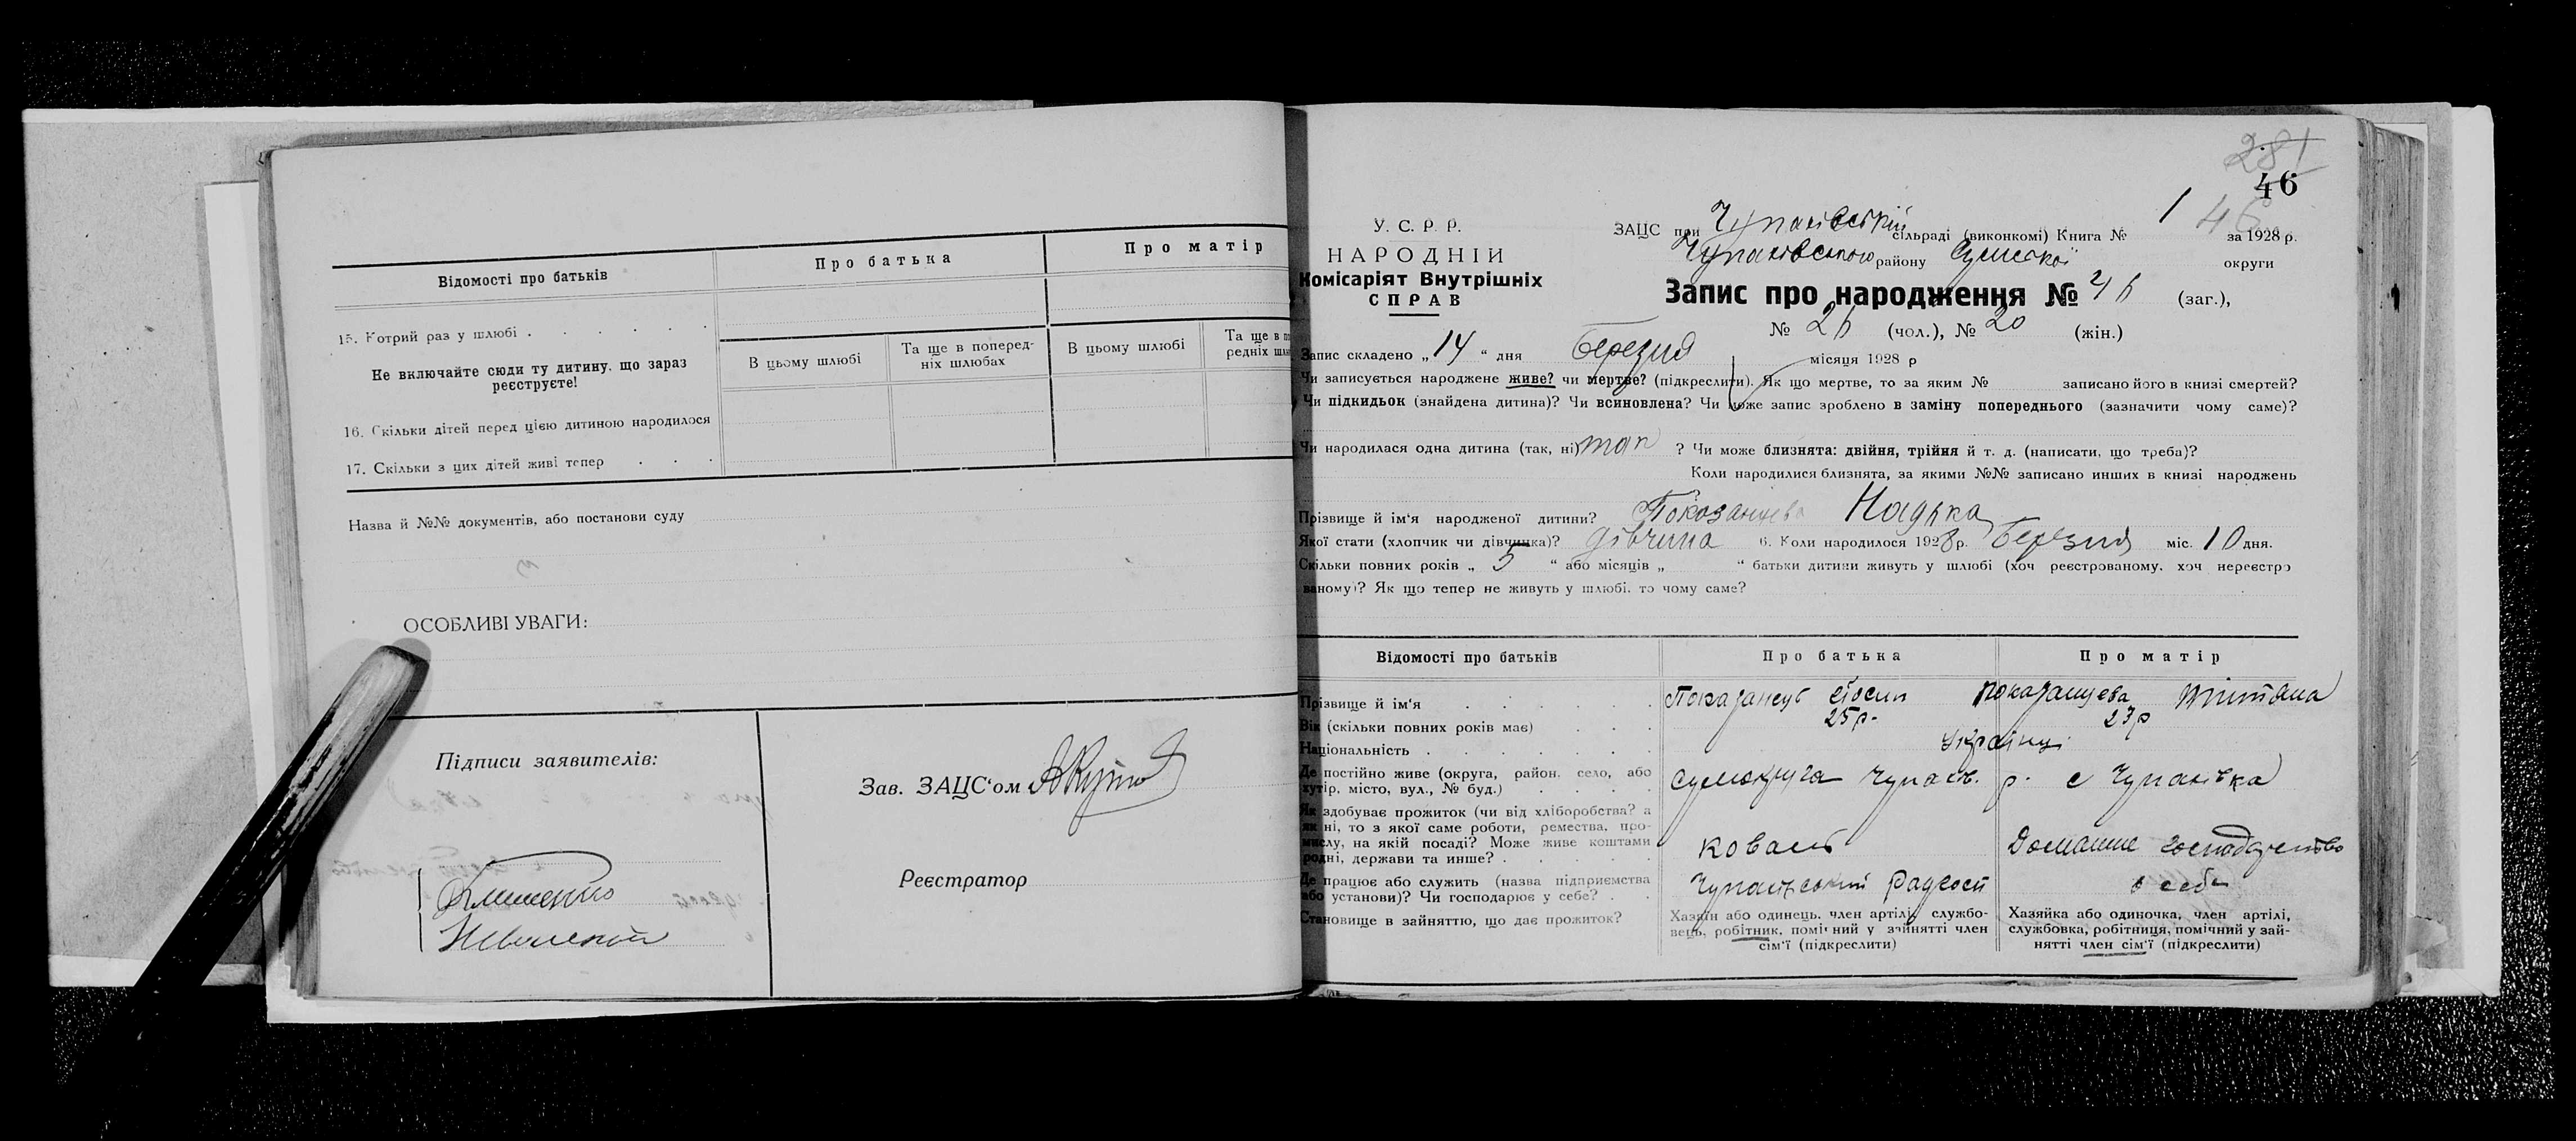 Відомості про батьків
Про батька
Про матір
15. Котрий раз у шлюбі
Не включайте сюди ту дитину, що зараз реєструєте!
В цьому шлюбі
Та ще в поперед-
ніх шлюбах
В цьому шлюбі
Та ще в по
редніх шлю
16. Скільки дітей перед цією дитиною народилося
17. Скільки з цих дітей живі тепер
Назва й №№ документів, або постанови суду
ОСОБЛИВІ УВАГИ:
Підписи заявителів:
Зав. ЗАЦС'ом
Реєстратор
281
46
У. С. Р. Р.
НАРОДНІЙ
Комісаріят Внутрішніх
СПРАВ
ЗАЦС при Чупахівській сільраді (виконкомі) Книга № 1 46 за 1928 р.
Чупахівського району Сумської округи
Запис про народження № 46 (заг.),
№ 26 (чол.), № 20 (жін.)
Запис складено „14“ дня Березня місяця 1928 р
Чи записується народжене живе? чи мертве? (підкреслити). Як що мертве, то за яким № записано його в книзі смертей?
Чи підкидьок (знайдена дитина)? Чи всиновлена? Чи може запис зроблено в заміну попереднього (зазначити чому саме)?
Чи народилася одна дитина (так, ні) так ? Чи може близнята: двійня, трійня й т. д. (написати, що треба)?
Коли народилися близнята, за якими №№ записано инших в книзі народжень
Прізвище й ім'я народженої дитини? Показанцева Надька
Якої стати (хлопчик чи дівчинка)? дівчина 6. Коли народилося 1928 р. Березня міс. 10 дня.
Скільки повних років „ 5 “ або місяців „ “ батьки дитини живуть у шлюбі (хоч реєстрованому, хоч нереєстро
ваному)? Як що тепер не живуть у шлюбі, то чому саме?
Відомості про батьків
Про батька
Про матір
Прізвище й ім'я Показанцев Йосип Показанцева Титяна
Вік (скільки повних років має) 25 р. 23 р
Національність Українці
Де постійно живе (округа, район, село, або
хутір, місто, вул., № буд.) Сумокруга Чупахів. р. с Чупахівка
Як здобуває прожиток (чи від хліборобства? а
як ні, то з якої саме роботи, ремества, про-
мислу, на якій посаді? Може живе коштами
родні, держави та инше? коваль Домашнє господарство
Де працює або служить (назва підприємства
або установи)? Чи господарює у себе? Чупахівський Радгосп в себе
Становище в зайняттю, що дає прожиток?
Хазяїн або одинець, член артілі, службо-
вець, робітник, помічний у зайнятті член
сім'ї (підкреслити)
Хазяйка або одиночка, член артілі,
службовка, робітниця, помічний у зай-
нятті член сім'ї (підкреслити)